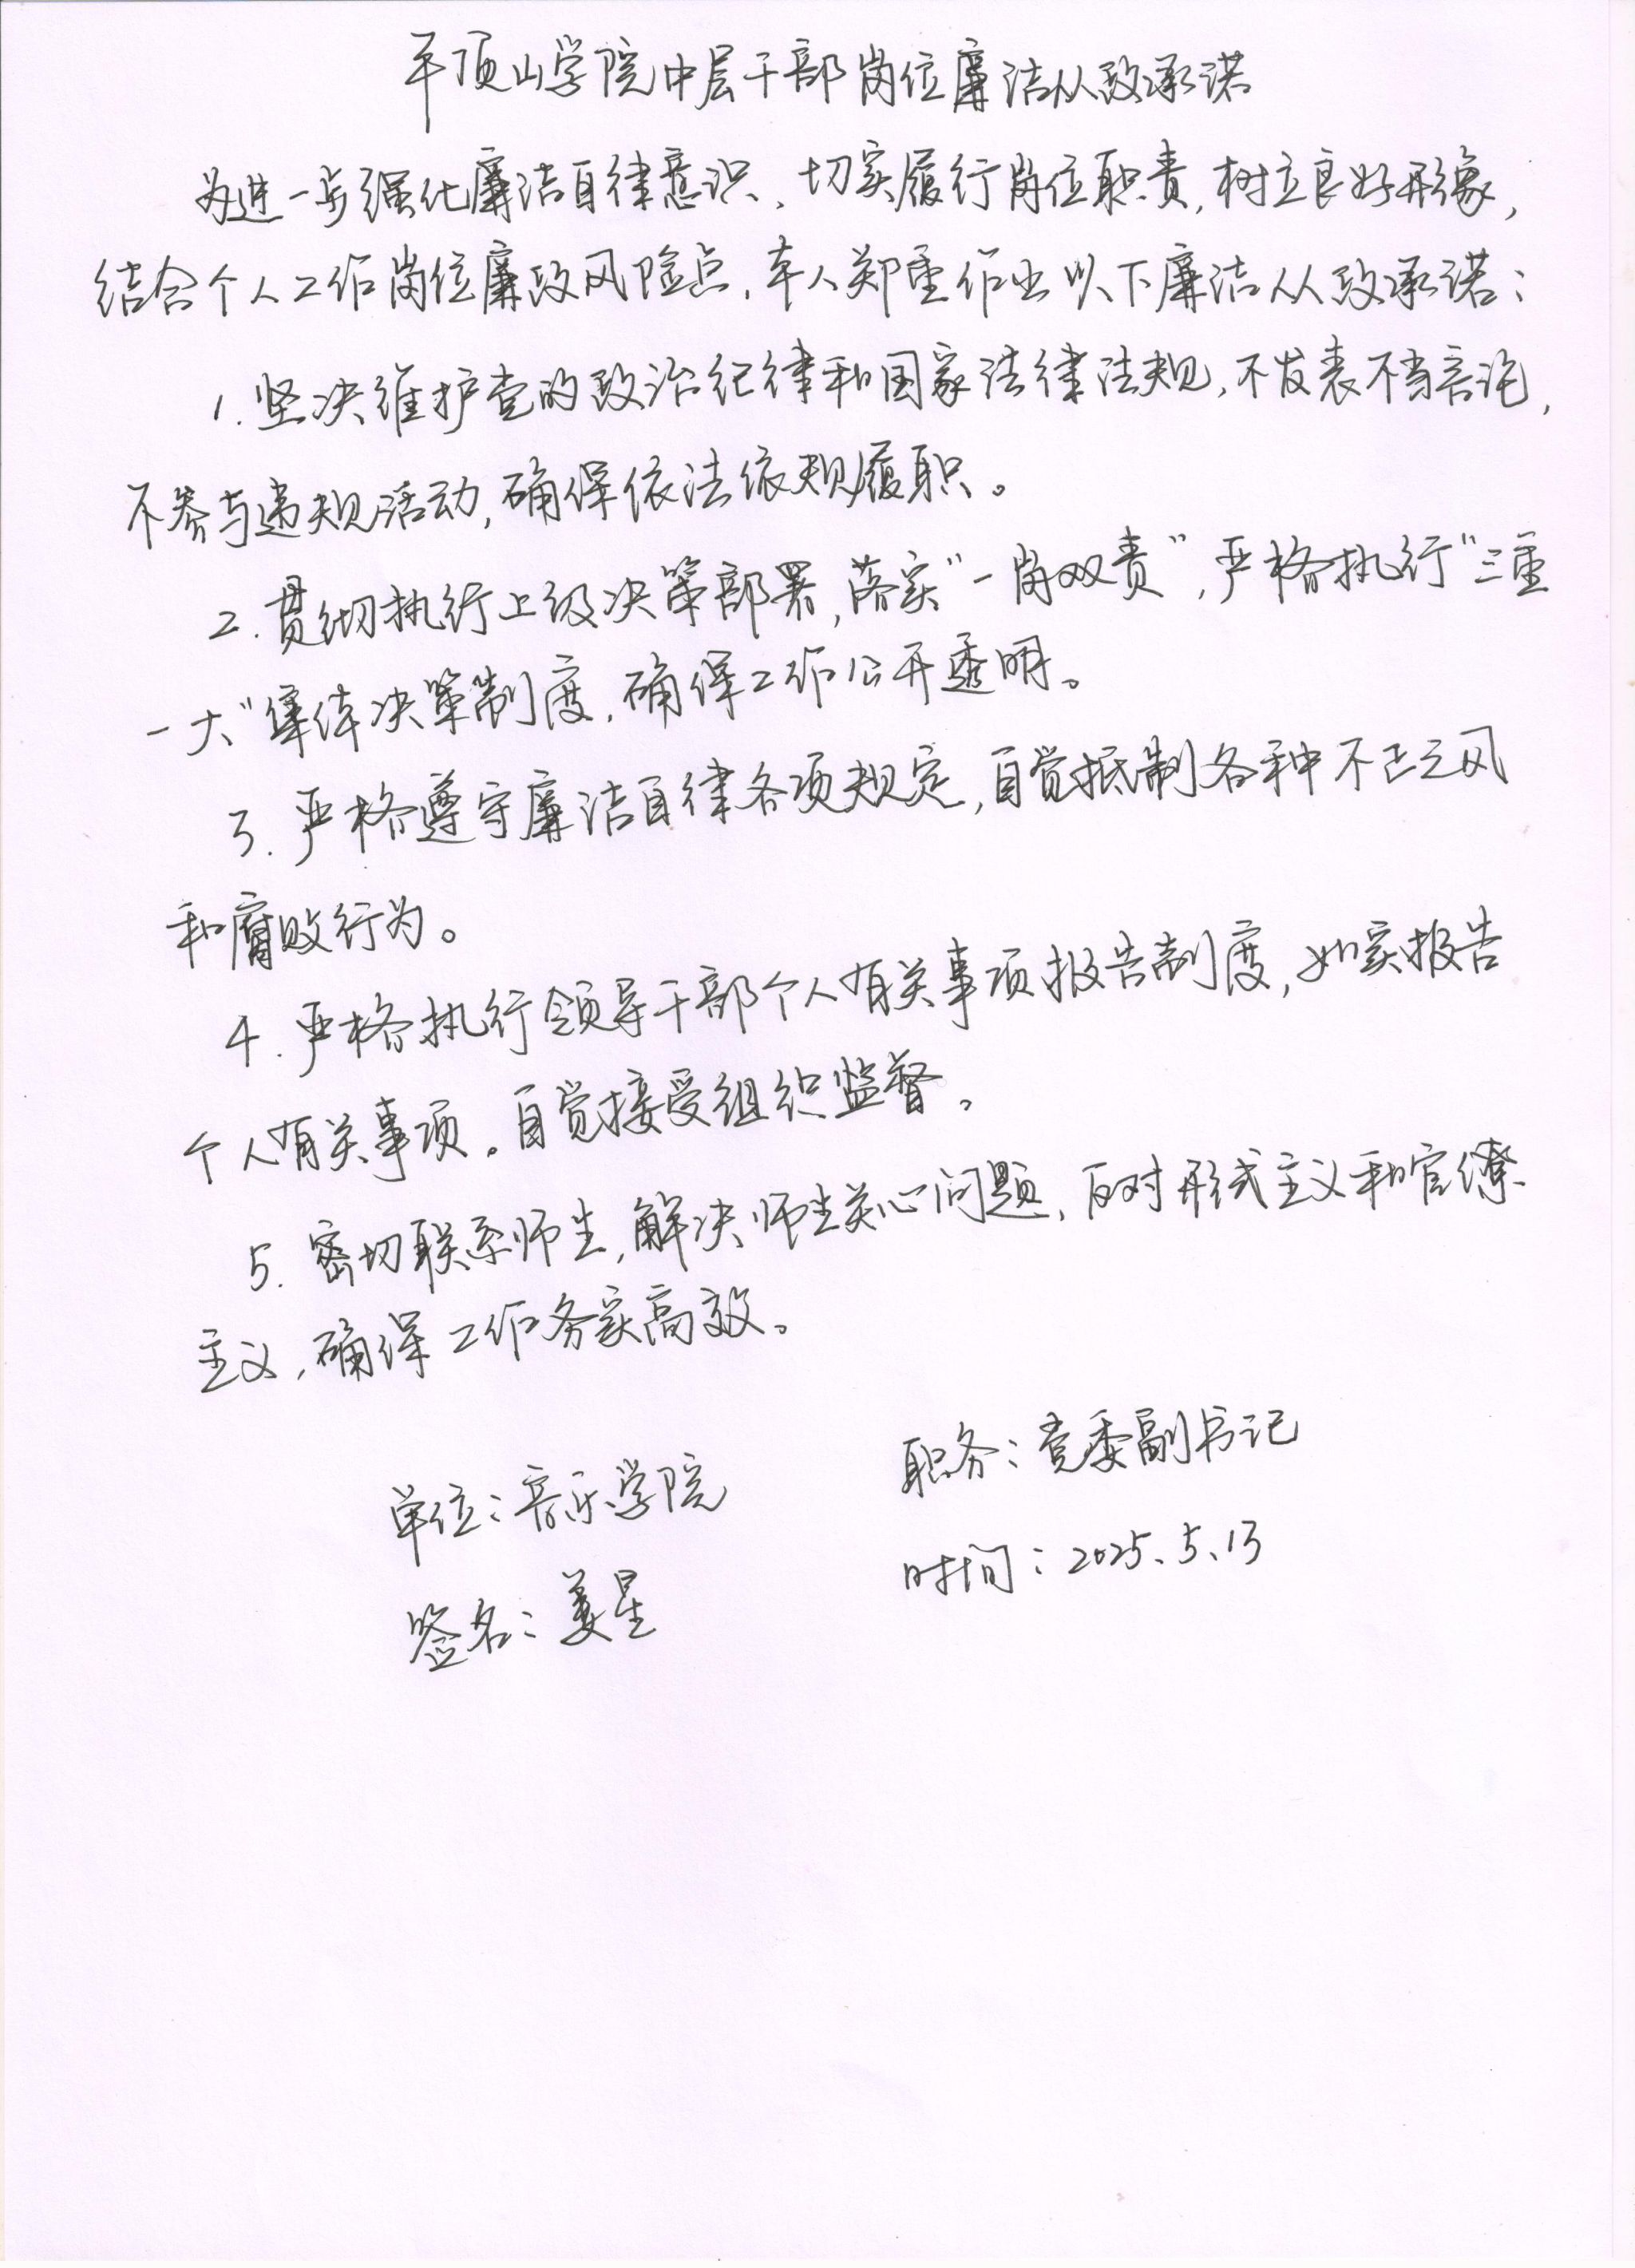 平顶山学院中层干部岗位廉洁从政承诺
为进一步强化廉洁自律意识、切实履行岗位职责,树立良好形象,
结合个人工作岗位廉政风险点,本人郑重作出以下廉洁从政承诺:
1.坚决维护党的政治纪律和国家法律法规,不发表不当言论,
不参与违规活动,确保依法依规履职。
2.贯彻执行上级决策部署,落实“一岗双责”,严格执行“三重
一大”集体决策制度,确保工作公开透明。
3.严格遵守廉洁自律各项规定,自觉抵制各种不正之风
和腐败行为。
4.严格执行领导干部个人有关事项报告制度,如实报告
个人有关事项。自觉接受组织监督。
5.密切联系师生,解决师生关心问题,反对形式主义和官僚
主义,确保工作务实高效。
单位:音乐学院 职务:党委副书记
签名:姜星 时间:2025、5、13